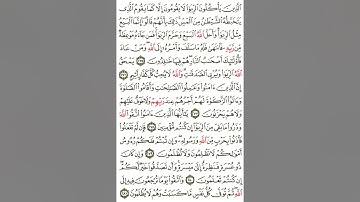 الَّذِينَ يَأْكُلُونَ الرِّبَوٰا۟ لَا يَقُومُونَ إِلَّا كَمَا يَقُومُ الَّذِى
يَتَخَبَّطُهُ الشَّيْطَٰنُ مِنَ الْمَسِّ ذَٰلِكَ بِأَنَّهُمْ قَالُوٓا۟ إِنَّمَا الْبَيْعُ
مِثْلُ الرِّبَوٰا۟ وَأَحَلَّ اللَّهُ الْبَيْعَ وَحَرَّمَ الرِّبَوٰا۟ فَمَن جَآءَهُۥ مَوْعِظَةٌ
مِّن رَّبِّهِۦ فَانتَهَىٰ فَلَهُۥ مَا سَلَفَ وَأَمْرُهُۥٓ إِلَى اللَّهِ وَمَنْ عَادَ
فَأُو۟لَٰٓئِكَ أَصْحَٰبُ النَّارِ هُمْ فِيهَا خَٰلِدُونَ ٢٧٥ يَمْحَقُ
اللَّهُ الرِّبَوٰا۟ وَيُرْبِى الصَّدَقَٰتِ وَاللَّهُ لَا يُحِبُّ كُلَّ كَفَّارٍ أَثِيمٍ ٢٧٦
إِنَّ الَّذِينَ ءَامَنُوا۟ وَعَمِلُوا۟ الصَّٰلِحَٰتِ وَأَقَامُوا۟ الصَّلَوٰةَ
وَءَاتَوُا۟ الزَّكَوٰةَ لَهُمْ أَجْرُهُمْ عِندَ رَبِّهِمْ وَلَا خَوْفٌ عَلَيْهِمْ
وَلَا هُمْ يَحْزَنُونَ ٢٧٧ يَٰٓأَيُّهَا الَّذِينَ ءَامَنُوا۟ اتَّقُوا۟ اللَّهَ
وَذَرُوا۟ مَا بَقِىَ مِنَ الرِّبَوٰٓا۟ إِن كُنتُم مُّؤْمِنِينَ ٢٧٨ فَإِن لَّمْ تَفْعَلُوا۟
فَأْذَنُوا۟ بِحَرْبٍ مِّنَ اللَّهِ وَرَسُولِهِۦ وَإِن تُبْتُمْ فَلَكُمْ رُءُوسُ
أَمْوَٰلِكُمْ لَا تَظْلِمُونَ وَلَا تُظْلَمُونَ ٢٧٩ وَإِن كَانَ
ذُو عُسْرَةٍ فَنَظِرَةٌ إِلَىٰ مَيْسَرَةٍ وَأَن تَصَدَّقُوا۟ خَيْرٌ لَّكُمْ
إِن كُنتُمْ تَعْلَمُونَ ٢٨٠ وَاتَّقُوا۟ يَوْمًا تُرْجَعُونَ فِيهِ إِلَى
اللَّهِ ثُمَّ تُوَفَّىٰ كُلُّ نَفْسٍ مَّا كَسَبَتْ وَهُمْ لَا يُظْلَمُونَ ٢٨١